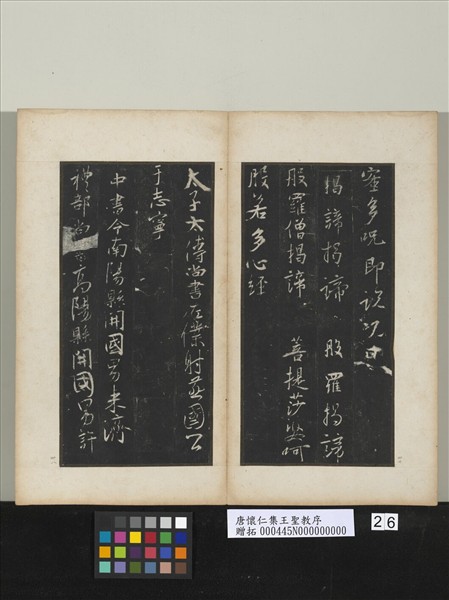 蜜多呪即說呪曰
揭諦揭諦 般羅揭諦
般羅僧揭諦 菩提莎婆呵
般若多心經
太子太傅尚書左僕射燕國公
于志寧
中書令南陽縣開國男來濟
禮部尚書高陽縣開國男許
唐懷仁集王聖教序
贈拓 000445N000000000
26